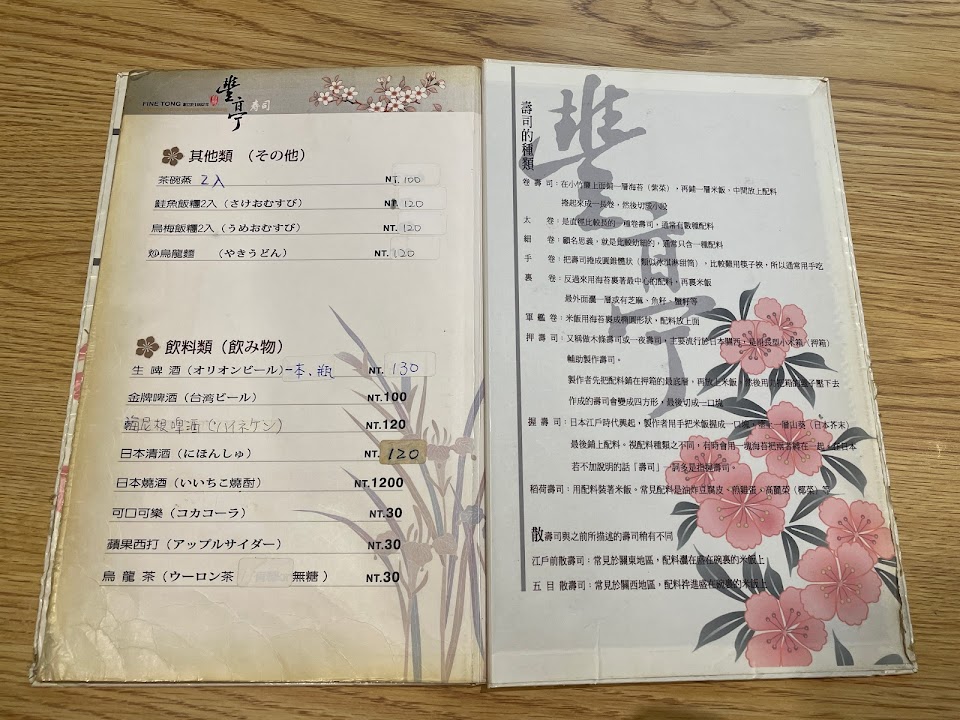 FINE TONG
豐亭
寿司
其他類 （その他）
茶碗蒸 2入 NT. 100
鮭魚飯糰2入（さけおむすび） NT. 120
烏梅飯糰2入（うめおむすび） NT. 120
炒烏龍麵 （やきうどん） NT. 120
飲料類（飲み物）
生 啤 酒（オリオンビール）一本、瓶 NT. 130
金牌啤酒（台湾ビール） NT.100
海尼根啤酒（ハイネケン） NT.120
日本清酒（にほんしゅ） NT. 120
日本燒酒（いいちこ焼酎） NT.1200
可口可樂（コカコーラ） NT.30
蘋果西打（アップルサイダー） NT.30
烏 龍 茶（ウーロン茶 無糖） NT.30
豐亭
壽司的種類
卷 壽 司：在小竹簾上面鋪一層海苔（紫菜），再鋪一層米飯，中間放上配料
捲起來成一長卷，然後切成小段
太 卷：是直徑比較長的一種卷壽司，通常有數種配料
細 卷：顧名思義，就是比較幼細的，通常只含一種配料
手 卷：把壽司捲成圓錐體狀（類似冰淇淋甜筒），比較難用筷子筴，所以通常用手吃
裏 卷：反過來用海苔裹著最中心的配料，再裹米飯
最外面灑一層或有芝麻、魚籽、蟹籽等
軍 艦 卷：米飯用海苔裹成橢圓形狀，配料放上面
押 壽 司：又稱做木條壽司或一夜壽司，主要流行於日本關西，是用長型小木箱（押箱）
輔助製作壽司。
製作者先把配料鋪在押箱的最底層，再放上米飯，然後用力把箱的蓋子壓下去
作成的壽司會變成四方形，最後切成一口塊
握 壽 司：日本江戶時代興起，製作者用手把米飯握成一口塊，塗上一層山葵（日本芥末）
最後鋪上配料。視配料種類之不同，有時會用一塊海苔把兩者綁在一起。在日本
若不加說明的話「壽司」一詞多是指握壽司。
稻荷壽司：用配料裝著米飯。常見配料是油炸豆腐皮、煎雞蛋、高麗菜（椰菜）等
散壽司與之前所描述的壽司稍有不同
江戶前散壽司：常見於關東地區，配料灑在盛在碗裏的米飯上
五 目 散壽司：常見於關西地區，配料拌進盛在碗裏的米飯上